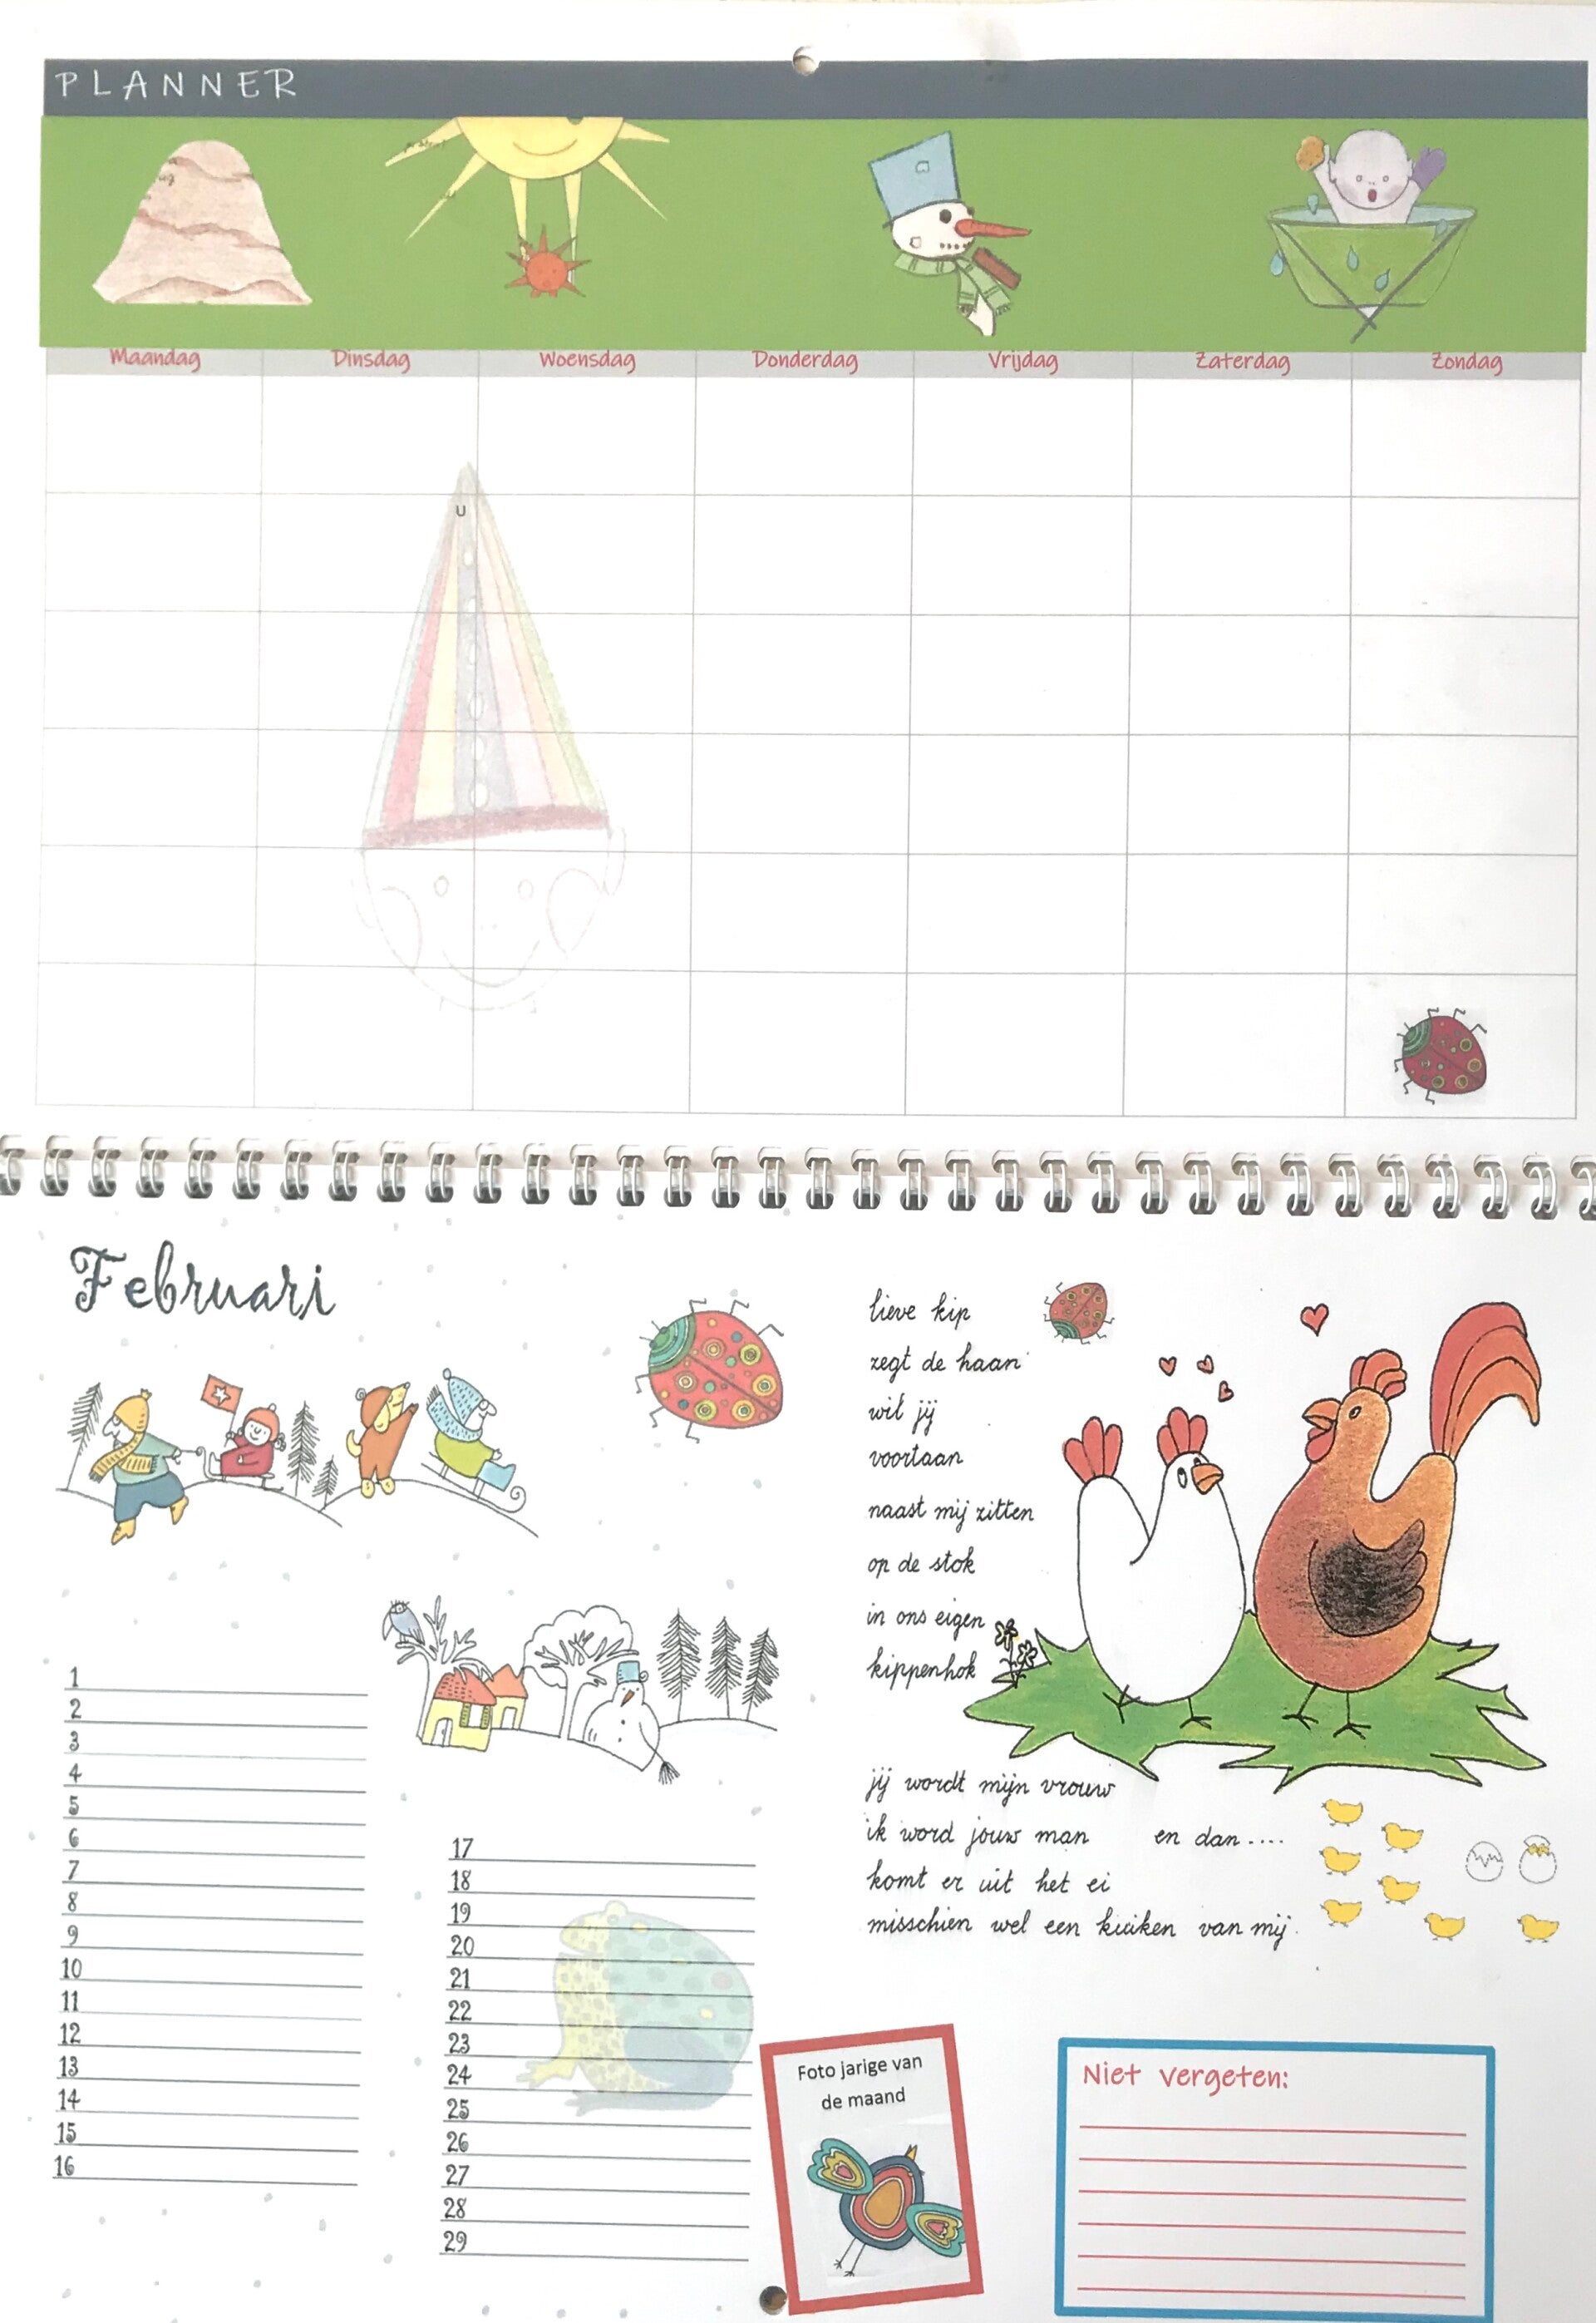 PLANNER
Maandag Dinsdag Woensdag Donderdag Vrijdag Zaterdag Zondag
U
Februari
lieve kip
zegt de haan
wil jij
voortaan
naast mij zitten
op de stok
in ons eigen
kippenhok
jij wordt mijn vrouw
ik word jouw man en dan....
komt er uit het ei
misschien wel een kuiken van mij.
1
2
3
4
5
6
7
8
9
10
11
12
13
14
15
16
17
18
19
20
21
22
23
24
25
26
27
28
29
Foto jarige van
de maand
Niet vergeten: